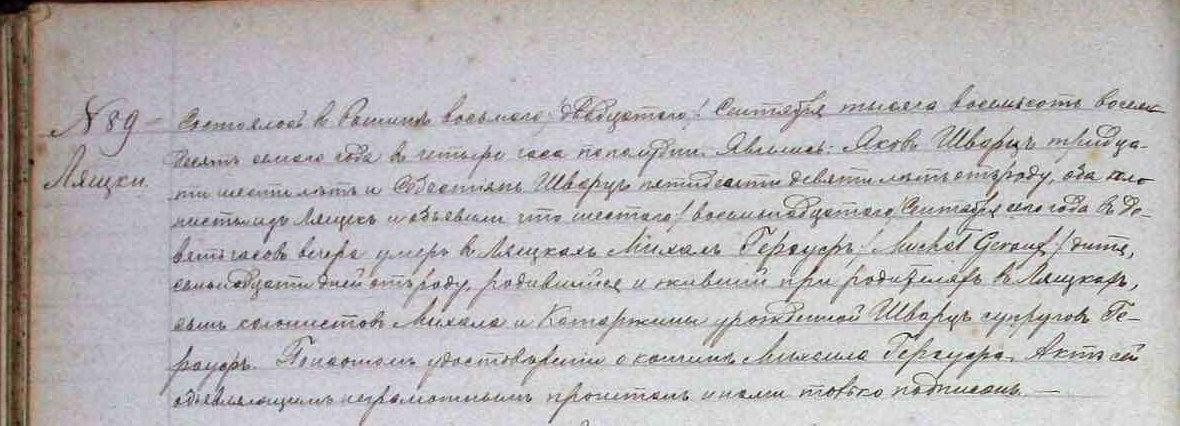 № 89 Состоялось въ восьмаго /двадцатаго/ Сентября тысяча восемьсотъ восемь
Лящки. десятъ седмаго года въ четыре часа пополудни. Явились: Яковъ Шварцъ тридца-
ти шести лѣтъ и Себестіянъ Шварцъ пятидесяти девяти лѣтъ отъ роду, оба коло
нисты изъ Лящекъ и объявили что шестаго /восемьнадцатаго/ Сентября сего года въ де-
вять часовъ вечера умеръ въ Лящкахъ Михалъ Герауфъ /Michał Gerauf/ дитя,
семнадцати дней отъ роду, родившійся и жившій при родителяхъ въ Лящкахъ,
сынъ колонистовъ Михала и Катаржины урожденной Шварцъ супруговъ Ге-
рауфъ. По настоящемъ удостовѣреніи о кончинѣ Михаила Герауфа. Актъ сей
объявляющимъ неграмотнымъ прочитанъ и нами только подписанъ. —